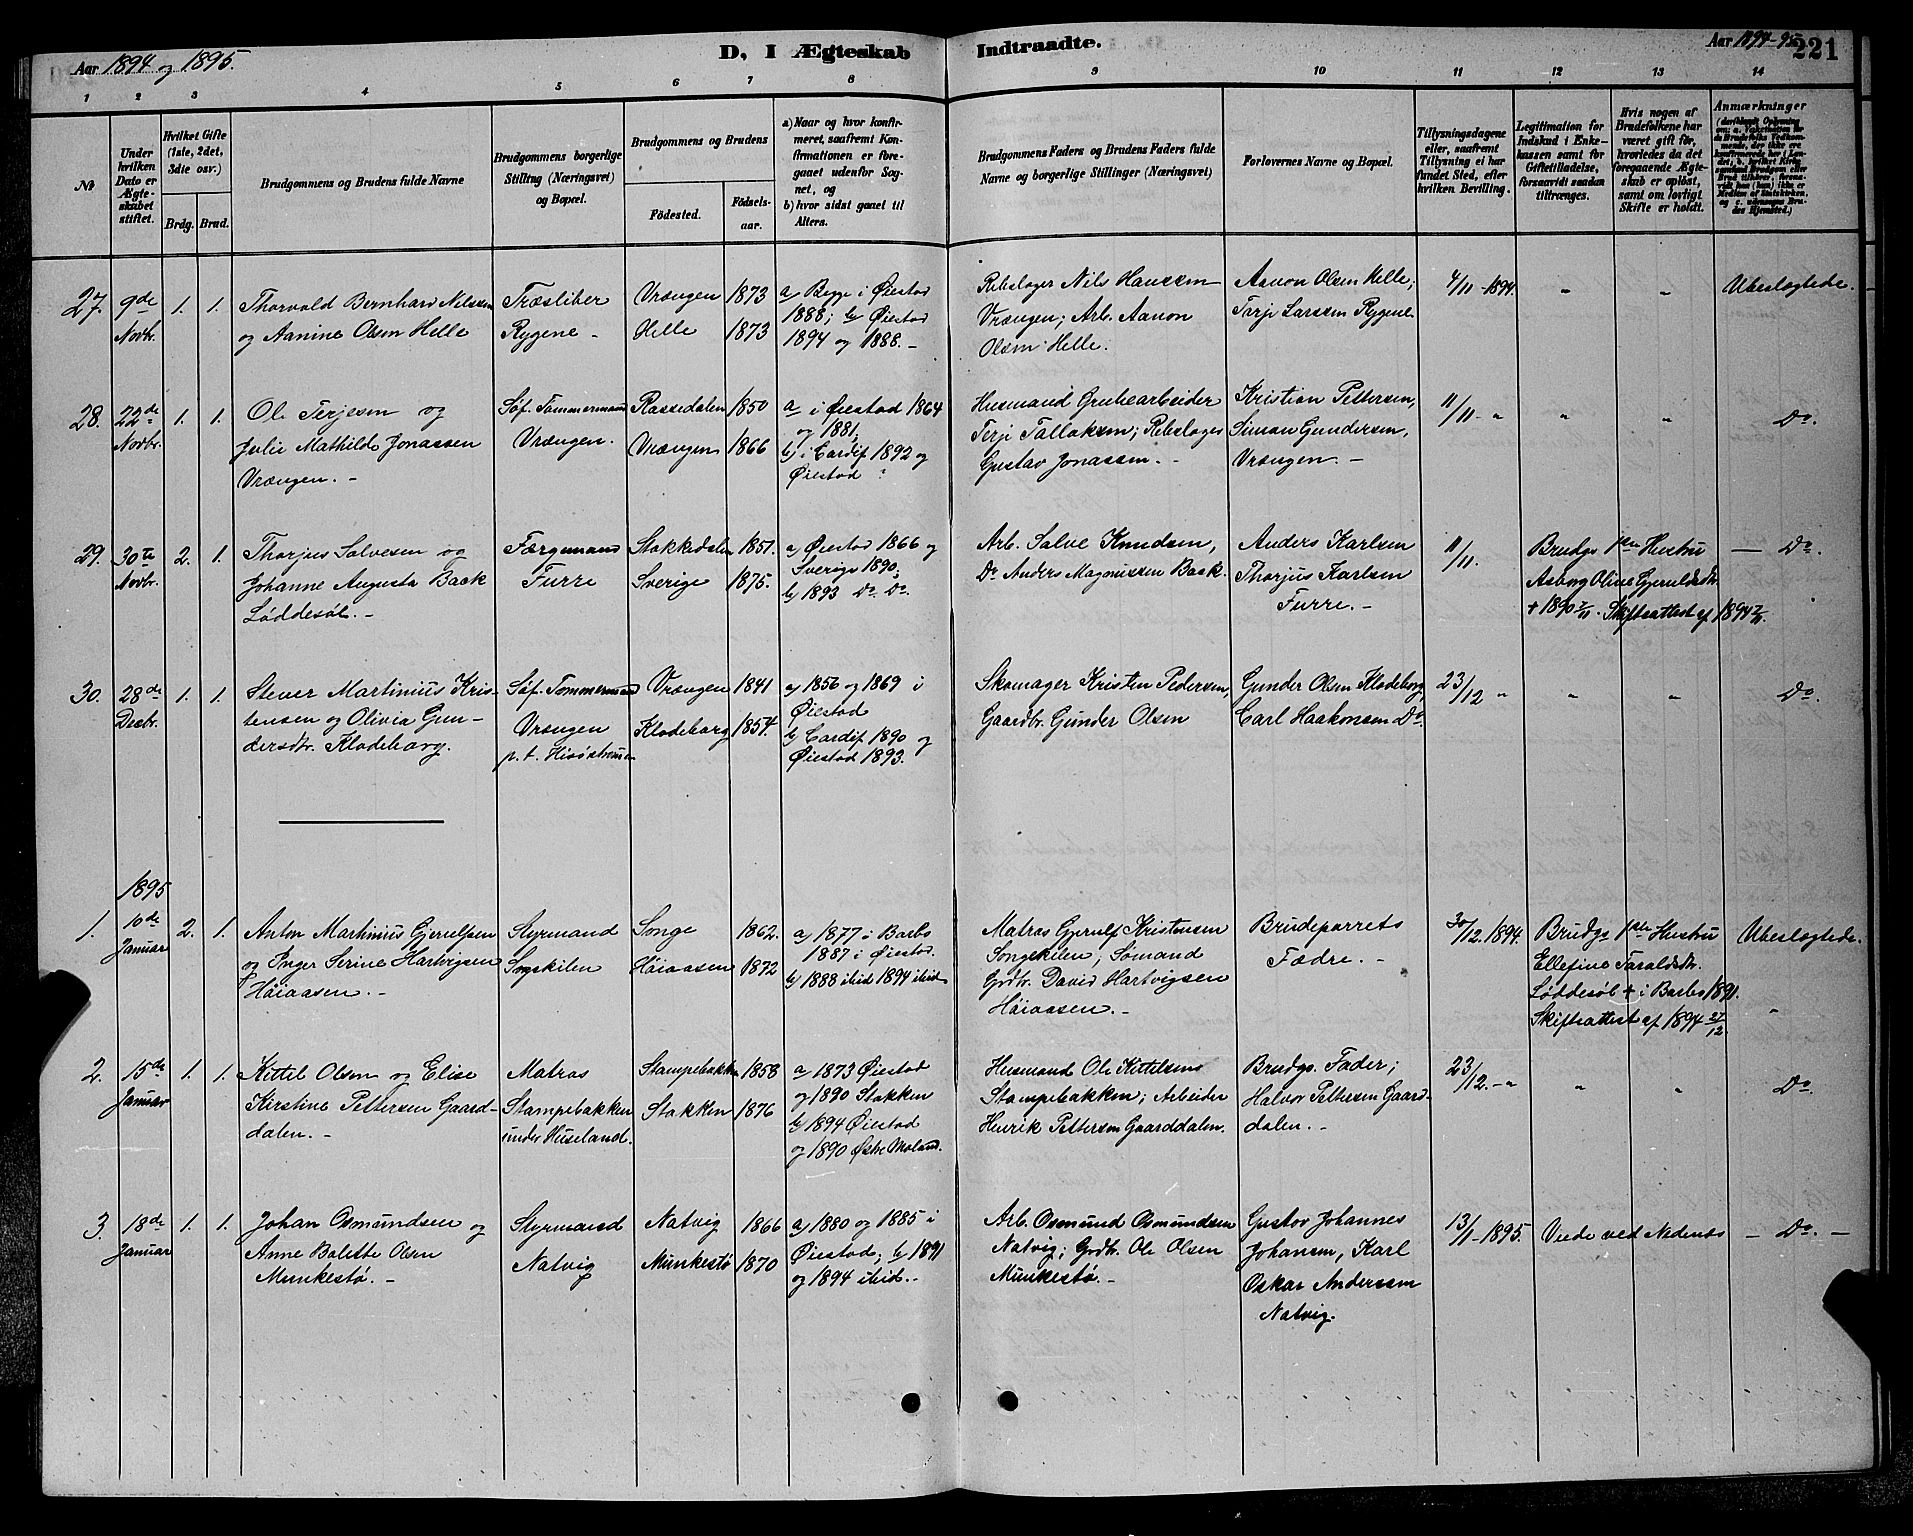 Aar 1894 og 1895.
D, I Ægteskab Indtraadte.
Aar 1894-95.
221
1 2 3 4 5 6 7 8 9 10 11 12 13 14
№
Under hvilken Dato er Ægteskabet stiftet.
Hvilket Gifte (1ste, 2det, 3die osv.)
Brdg. Brud.
Brudgommens og Brudens fulde Navne
Brudgommens borgerlige Stilling (Næringsvei) og Bopæl.
Brudgommens og Brudens
Födested.
Födselsaar.
a) Naar og hvor konfirmeret, saafremt Konfirmationen er foregaaet udenfor Sognet, og
b) hvor sidst gaaet til Alters.
Brudgommens Faders og Brudens Faders fulde Navne og borgerlige Stillinger (Næringsvei)
Forlovernes Navne og Bopæl.
Tillysningsdagene eller, saafremt Tillysning ei har fundet Sted, efter hvilken Bevilling.
Legitimation for Indskud i Enkekassen samt for Giftetilladelse, forsaavidt saadan tiltrænges.
Hvis nogen af Brudefolkene har været gift før, hvorledes da det foregaaende Ægteskab er opløst, samt om lovligt Skifte er holdt.
Anmærkninger
27. 9de Novbr. 1. 1.
Thorvald Bernhard Nilssen
og Aanine Olsen Helle
Træsliber
Rygene -
Vrængen 1873
Helle 1873
a) Begge i Øiestad
1888; b) Øiestad
1894 og 1888. -
Rebslager Nils Hanssen
Vrængen; Arb. Aanon
Olsen Helle.
Aanon Olsen Helle;
Terje Larssen Rygene
4/11 - 1894.
" "
Ubeslægtede.
28. 22de Novbr. 1. 1.
Ole Terjesen og
Julie Mathilde Jonassen
Vrængen. -
Søf. Tømmermand
Vrængen.
Rassedalen 1850
Vrængen 1866
a i Øiestad 1864
og 1881;
b) i Cardif 1892 og
Øiestad ?
Husmand Grubearbeider
Terje Tallaksen; Rebslager
Gustav Jonassen. -
Kristian Pettersen,
Simon Gundersen,
Vrængen. -
11/11 - "
" "
Do.
29. 30te Novbr. 2. 1.
Thorjus Salvesen og
Johanne Augusta Back
Løddesøl. -
Færgemand
Furre
Stokkedalen 1851.
Sverige 1875.
a) Øiestad 1866 og
Sverige 1890;
b) 1893 Do. Do.
Arb. Salve Knudsen,
Do. Anders Magnussen Back.
Anders Karlsen
Thorjus Karlsen
Furre. -
11/11.
Brudgs 1ste Hustru
Asborg Oline Gjeruldsdtr.
+ 1890 Skifteattest af 1894
— Do.
30. 28de Decbr. 1. 1.
Stener Martinius Kris-
tensen og Olivia Gun-
dersdtr. Klodeborg.
Søf. Tømmermand
Vrængen
p. t. Hisøstrømmen
Vrængen 1841
Klodeborg 1854.
a) 1856 og 1869 i
Øiestad
b) Cardif 1890 og
Øiestad 1893.
Skomager Kristen Pedersen,
Gaardbr. Gunder Olsen
Gunder Olsen Klodeborg
Carl Haakonsen Do
23/12 "
" "
Do.
1895
1. 10de Januar 2. 1.
Anton Martinius Gjerulfsen
og Inger Serine Hartvigsen
Høiaasen. -
Styrmand
Songskilen
Songe 1862.
Høiaasen 1872
a) 1877 i Barbo
1887 i Øiestad.
b) 1888 ibid 1894 ibid
Matros Gjerulf Kristensen
Songekilen; Sømand
Grdbr. David Hartvigsen
Høiaasen. -
Brudeparrets
Fædre. -
30/12. 1894.
Brudgs 1ste Hustru
Ellefine Taraldsdtr.
Løddesøl + i Barbo 1891.
Skifteattest af 1894 27/12.
Ubeslægtede.
"
2. 15de Januar 1. 1.
Kittel Olsen og Elise
Kirstine Pettersen Gaard-
dalen. -
Matros
Stampebakken
under Huseland.
Stampebakken 1858
Stokken 1876
a) 1873 Øiestad
og 1890 Stokken
b) 1894 Øiestad
og 1890 Østre Moland.
Husmand Ole Kittelsen
Stampebakken; Arbeider
Henrik Pettersen Gaarddalen.
Brudgs. Fader;
Halvor Pettersen Gaard-
dalen. -
23/12. - "
" "
Do.
3. 18de Januar 1. 1.
Johan Osmundsen og
Anne Bolette Olsen
Munkestø. -
Styrmand
Natvig
Natvig 1866
Munkestø 1870
a) 1880 og 1885 i
Øiestad; b) 1891
og 1894 ibid. -
Arb. Osmund Osmundsen
Natvig; Grdbr. Ole Olsen
Munkestø. -
Gustav Johannes
Johansen, Karl
Oskar Anderssen
Natvig.
13/1 - 1895.
Viede ved Nedenes
- Do. -